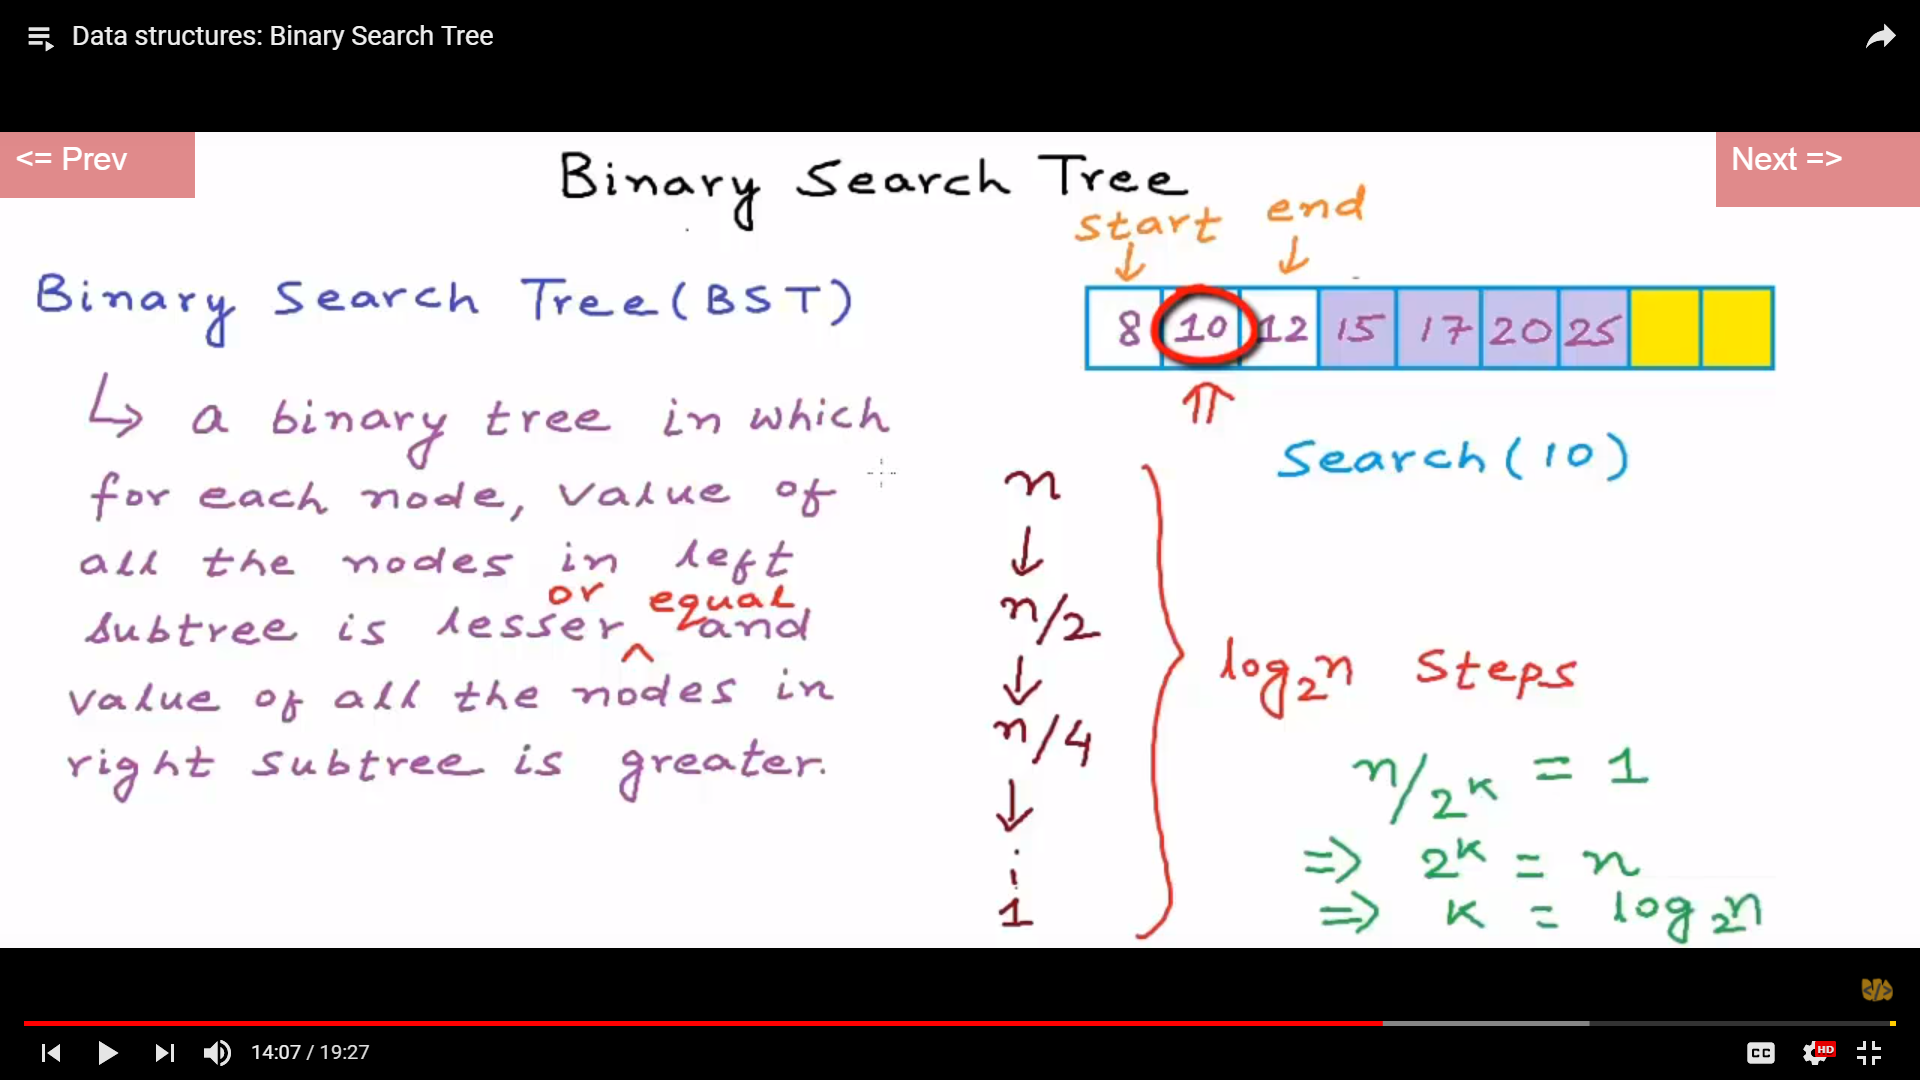 Data structures: Binary Search Tree
<= Prev
Next =>
Binary Search Tree
start end
8 10 12 15 17 20 25
Search(10)
Binary Search Tree(BST)
↳ a binary tree in which
for each node, value of
all the nodes in left
or equal
subtree is lesser ^ and
value of all the nodes in
right subtree is greater.
n
↓
n/2
↓
n/4
↓
.
i
1
log₂n Steps
n/2ᵏ = 1
=> 2ᵏ = n
=> k = log₂n
</>
14:07 / 19:27
CC
HD